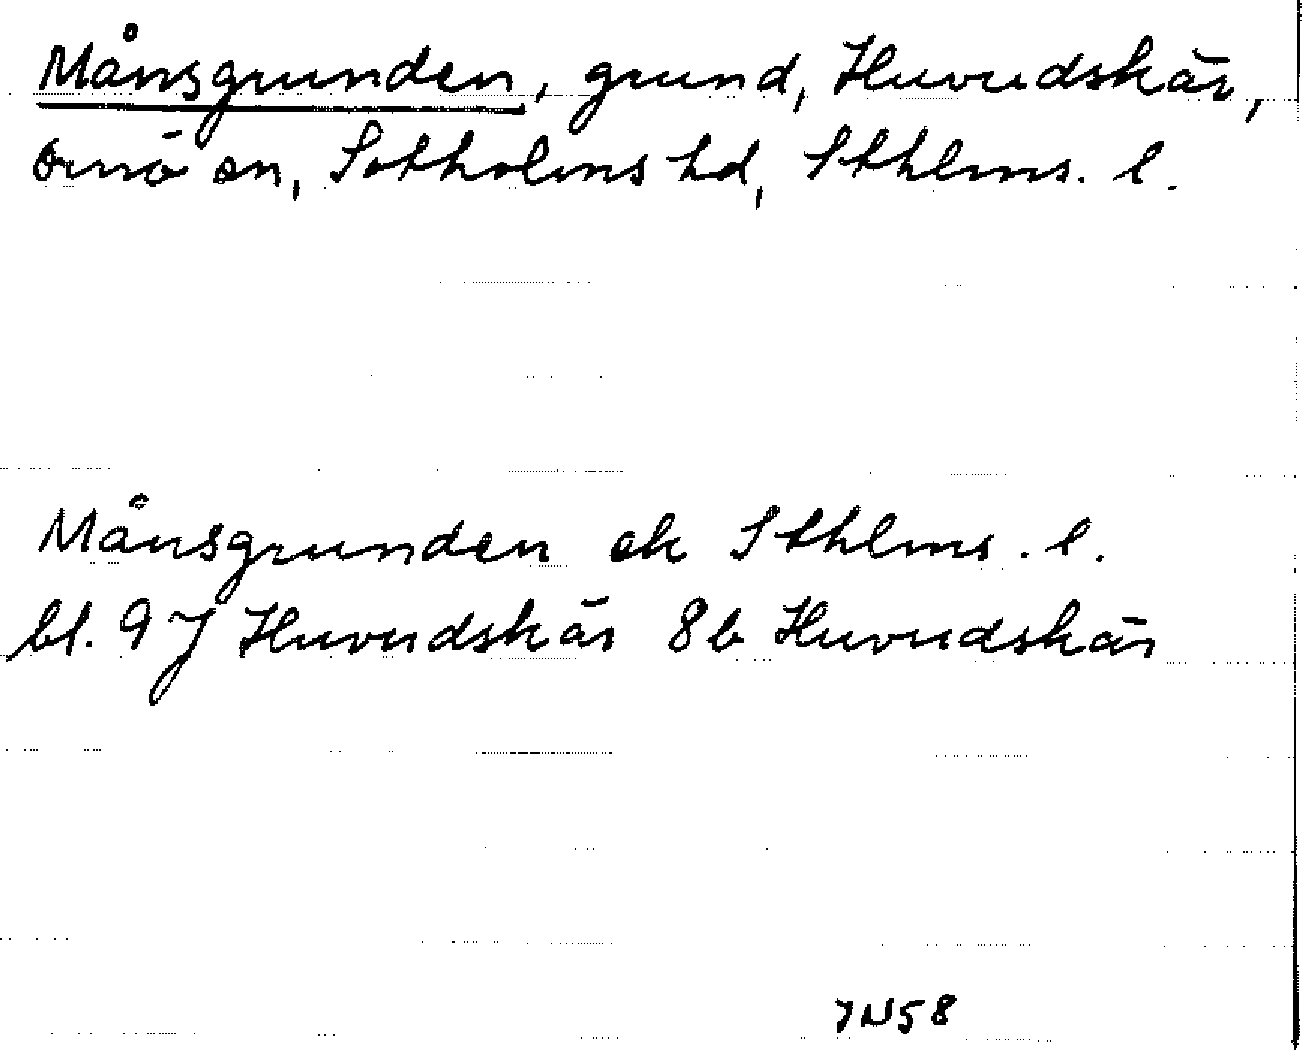 Månsgrunden, grund, Huvudskär,
Ornö sn, Sotholms hd, Sthlms. l.
Månsgrunden ek Sthlms. l.
bl. 9J Huvudskär 8b Huvudskär